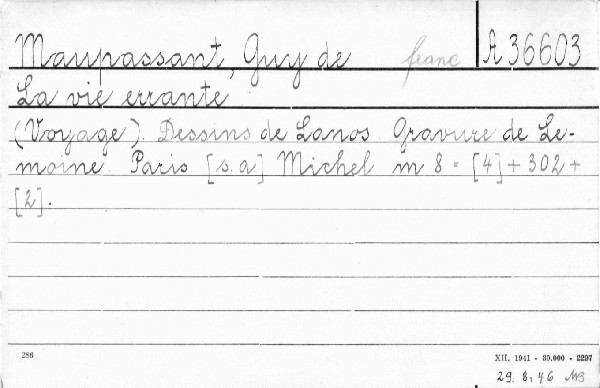 Maupassant, Guy de franc A 36603
La vie errante
(Voyage). Dessins de Lanos. Gravure de Le-
moine. Paris [s.a] Michel m 8° [4]+302+
[2].
286
XII. 1941 - 30.000 - 2297
29. 8. 46